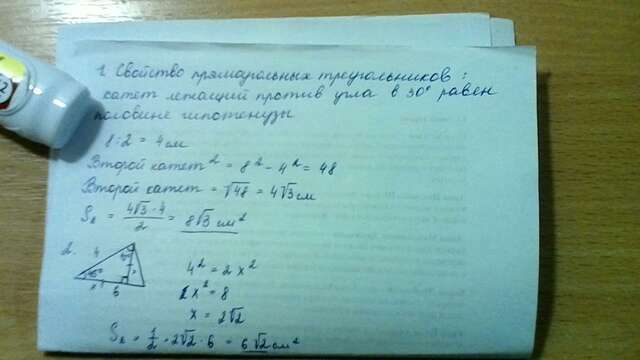 1. Свойство прямоугольных треугольников:
катет лежащий против угла в 30° равен
половине гипотенузы
8:2 = 4 см
Второй катет² = 8² - 4² = 48
Второй катет = √48 = 4√3 см
S = 4√3·4/2 = 8√3 см²
2.
4
45°
x
6
4² = 2x²
x² = 8
x = 2√2
S = 1/2 · 2√2 · 6 = 6√2 см²